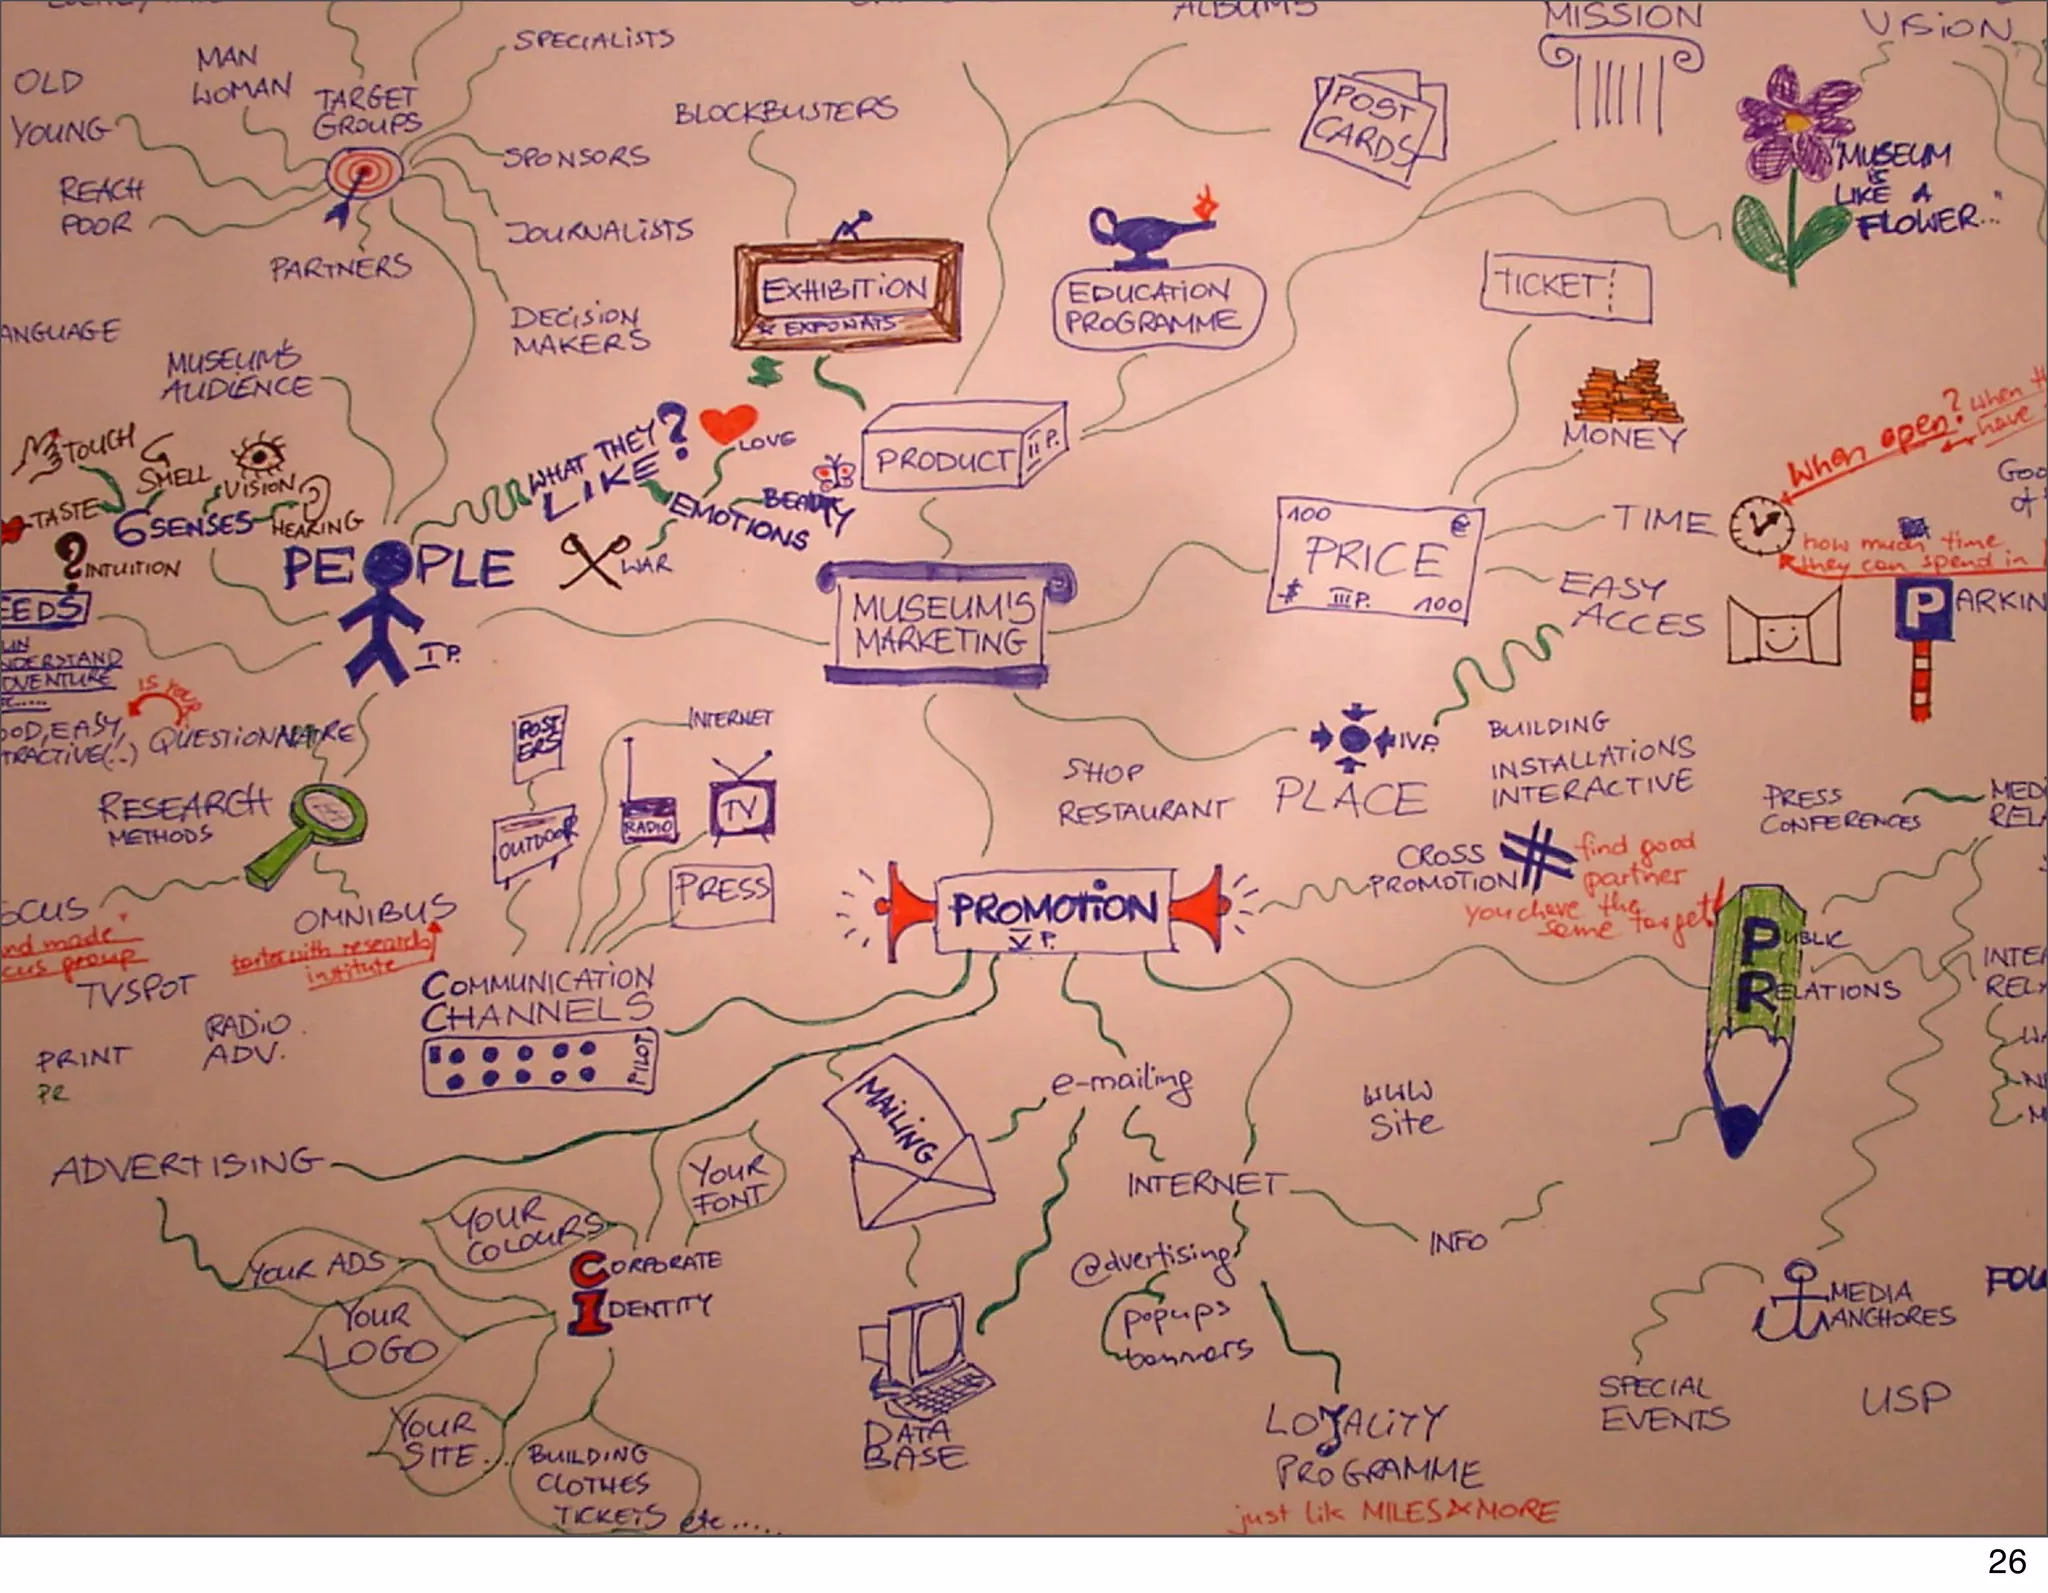 ALBUMS
MISSION
VISION
SPECIALISTS
MAN
WOMAN
OLD
YOUNG
TARGET
GROUPS
REACH
POOR
SPONSORS
JOURNALISTS
PARTNERS
DECISION
MAKERS
BLOCKBUSTERS
POST
CARDS
"MUSEUM
IS
LIKE A
FLOWER..."
EXHIBITION
& EXPONATS
EDUCATION
PROGRAMME
TICKET
ANGUAGE
MUSEUM'S
AUDIENCE
TOUCH
SMELL
VISION
TASTE
6 SENSES
HEARING
INTUITION
WHAT THEY
LIKE?
LOVE
EMOTIONS
BEAUTY
WAR
PRODUCT
II P.
MONEY
When open?
when
have
TIME
how much time
they can spend in
PEOPLE
I P.
MUSEUM'S
MARKETING
100 €
PRICE
$ III P. 100
EASY
ACCES
PARKIN
EEDS
ADVENTURE
IS YOUR
OOD, EASY,
TRACTIVE(..)
QUESTIONNAIRE
RESEARCH
METHODS
OCUS
nd made
cus group
OMNIBUS
faster with research
institute
POST
ERS
OUTDOOR
INTERNET
RADIO
TV
PRESS
SHOP
RESTAURANT
IV P.
PLACE
BUILDING
INSTALLATIONS
INTERACTIVE
PRESS
CONFERENCES
MEDI
RELA
PROMOTION
V P.
CROSS
PROMOTION
find good
partner
you have the
same target!
PUBLIC
RELATIONS
INTER
RELA
COMMUNICATION
CHANNELS
PILOT
TVSPOT
RADIO
ADV.
PRINT
PR
ADVERTISING
MAILING
e-mailing
WWW
Site
INTERNET
INFO
@dvertising
popups
banners
YOUR
FONT
YOUR
COLOURS
YOUR ADS
YOUR
LOGO
YOUR
SITE...
CORPORATE
IDENTITY
BUILDING
CLOTHES
TICKETS etc.....
DATA
BASE
LOYALITY
PROGRAMME
just lik MILES & MORE
MEDIA
ANCHORES
FOU
SPECIAL
EVENTS
USP
26